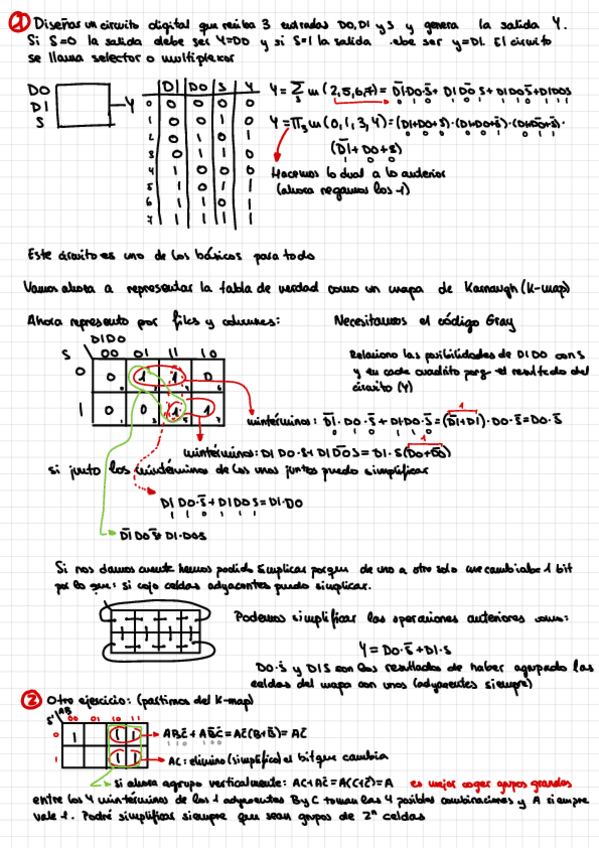 ① Diseñar un circuito digital que reciba 3 entradas D0, D1 y S y genera la salida Y.
Si S=0 la salida debe ser Y=D0 y si S=1 la salida debe ser y=D1. El circuito
se llama selector o multiplexor
D0
D1
S
Y
D1 D0 S Y
0 0 0 0 0
1 0 0 1 0
2 0 1 0 1
3 0 1 1 0
4 1 0 0 0
5 1 0 1 1
6 1 1 0 1
7 1 1 1 1
Y = Σ₃ m (2,5,6,7) = D̄1·D0·S̄ + D1 D̄0 S + D1D0S̄ + D1D0S
0 1 0 1 0 1 1 1 0 1 1 1
Y = Π₃ M (0,1,3,4) = (D1+D0+S)·(D1+D0+S̄)·(D1+D̄0+S̄)·
(D̄1+D0+S)
Hacemos lo dual a lo anterior
(ahora negamos los 1)
Este circuito es uno de los básicos para todo
Vamos ahora a representar la tabla de verdad como un mapa de Karnaugh (K-map)
Ahora represento por filas y columnas: Necesitamos el código Gray
D1D0
S 00 01 11 10
0 0 1 1 0
1 0 0 1 1
Relaciono las posibilidades de D1D0 con S
y en cada cuadrito pongo el resultado del
circuito (Y)
mintérminos: D̄1·D0·S̄ + D1·D0·S̄ = (D̄1+D1)·D0·S̄ = D0·S̄
1
mintérmino: D1 D0·S + D1 D̄0 S = D1·S (D0+D̄0)
1
si junto los mintérminos de los unos juntos puedo simplificar
D1 D0·S̄ + D1 D0 S = D1·D0
1 1 0 1 1 1
D̄1 D0 S̄ D1·D0S
Si nos damos cuenta hemos podido simplicar porque de uno a otro solo me cambiaba 1 bit
por lo que: si cojo celdas adyacentes puedo simplicar.
Podemos simplificar las operaciones anteriores como:
Y = D0·S̄ + D1·S
D0·S̄ y D1S son los resultados de haber agrupado las
celdas del mapa con unos (adyacentes siempre)
② Otro ejercicio: (partimos del K-map)
AB
00 01 10 11
0 1 1 1
1 1 1
ABC̄ + AB̄C̄ = AC̄(B+B̄) = AC̄
1 1 0 1 0 0
AC: elimino (simplifico) el bit que cambia
si ahora agrupo verticalmente: AC+AC̄ = A(C+C̄) = A es mejor coger grupos grandes
entre los 4 mintérminos de los 1 adyacentes B y C toman las 4 posibles combinaciones y A siempre
vale 1. Podré simplificar siempre que sean grupos de 2ⁿ celdas